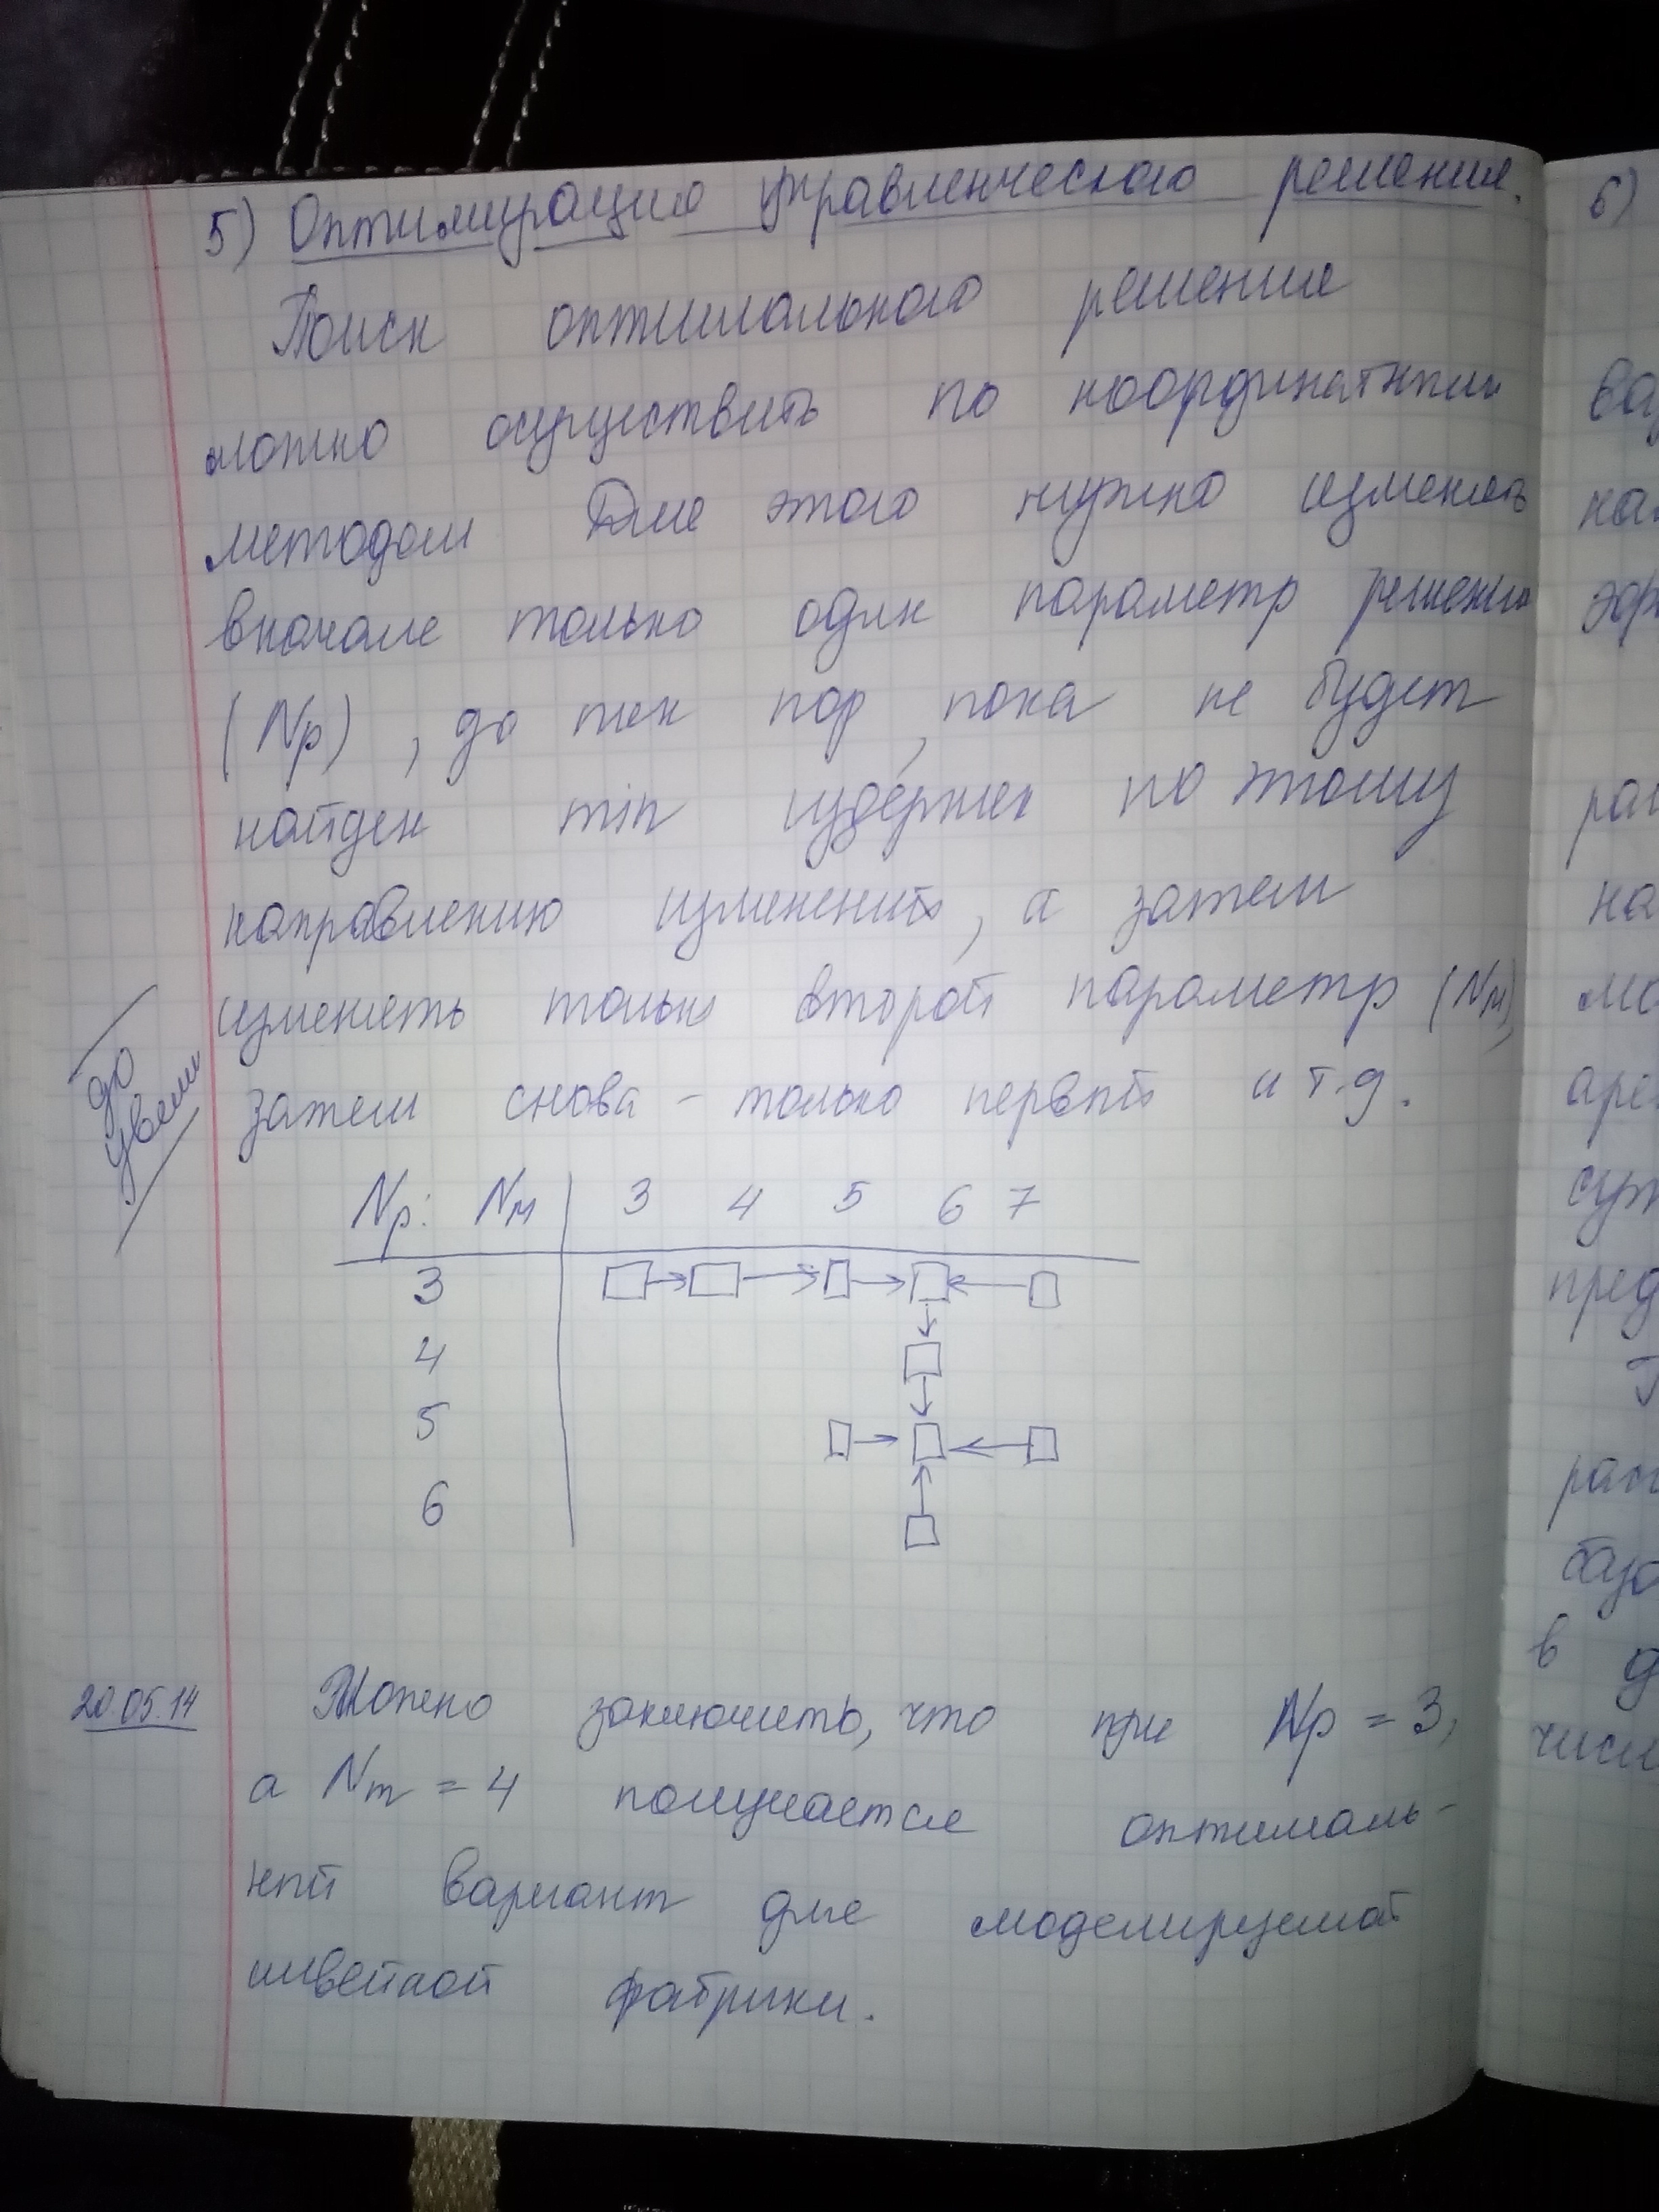 5) Оптимизация управленческого решения.
Поиск оптимального решения
можно осуществить по координатным
методом Для этого нужно изменять
вначале только один параметр решения
(Nр), до тех пор, пока не будет
найден min издержек по этому
направлению изменений, а затем
изменять только второй параметр (Nм),
затем снова - только первый и т.д.
до
увели
Nр: Nм 3 4 5 6 7
3
4
5
6
20.05.14
Можно заключить, что при Nр = 3,
а Nm = 4 получается оптималь-
ный вариант для моделируемой
швейной фабрики.
6)
ва
на
эф
рас
на
мо
аре
сущ
пред
рас
базо
в д
числ